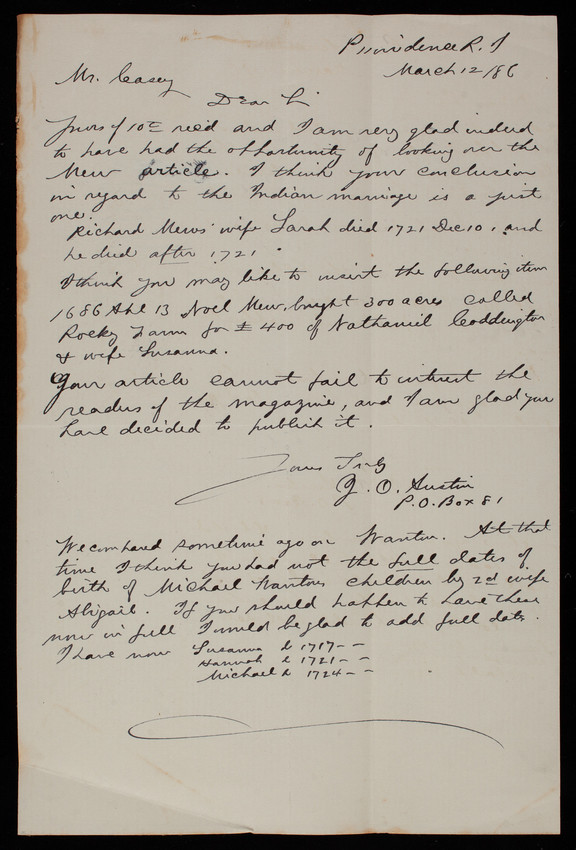 Providence R. I
March 12/86
Mr. Casey
Dear Sir
Yours of 10th rec'd and I am very glad indeed
to have had the opportunity of looking over the
Mew article. I think your conclusion
in regard to the Indian marriage is a just
one.
Richard Mews' wife Sarah died 1721 Dec 10, and
he died after 1721.
I think you may like to insert the following item
1686 Apl 13 Noel Mew, bought 300 acres called
Rocky Farm for £400 of Nathaniel Coddington
& wife Susanna.
Your article cannot fail to interest the
readers of the magazine, and I am glad you
have decided to publish it.
Yours Truly
J. O. Austin
P.O. Box 81
We compared sometime ago on Wanton. At that
time I think you had not the full dates of
birth of Michael Wantons children by 2d wife
Abigail. If you should happen to have these
now in full I would be glad to add full date.
I have now Susanna b 1717 – –
Hannah b 1721 – –
Michael b 1724 – –